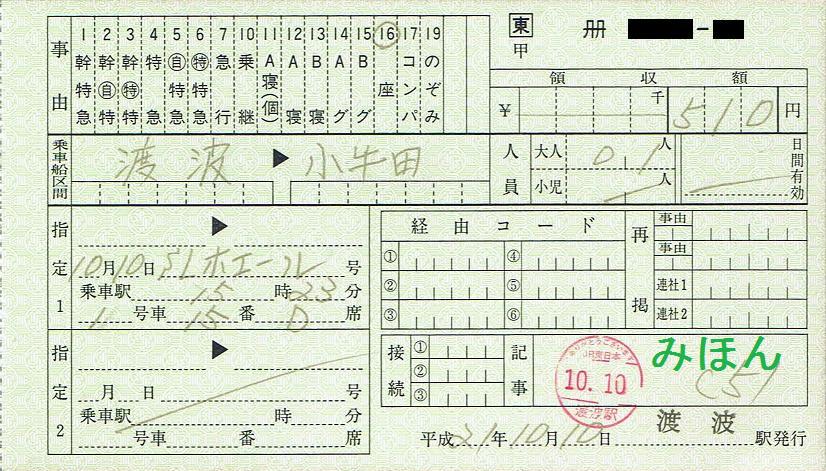 東 冊 -
甲
事由
1 幹特急
2 幹自特
3 幹特特
4 特急
5 自特急
6 特特急
7 急行
10 乗継
11 A寝(個)
12 A寝
13 B寝
14 Aグ
15 Bグ
16 座
17 コンパ
19 のぞみ
領収額
¥ 千 510 円
乗車船区間 渡波 ▶ 小牛田
人員 大人 01 人
小児 人
日間有効
指定1 ▶
10月10日 SLホエール 号
乗車駅 15 時 23 分
1 号車 15 番 D 席
経由コード
① ④
② ⑤
③ ⑥
再掲 事由
事由
連社1
連社2
指定2 ▶
月 日 号
乗車駅 時 分
号車 番 席
接続 ①
②
③
記事 みほん
C51
ありがとうございます
JR東日本
10.10
渡波駅
平成21年10月10日 渡波 駅発行